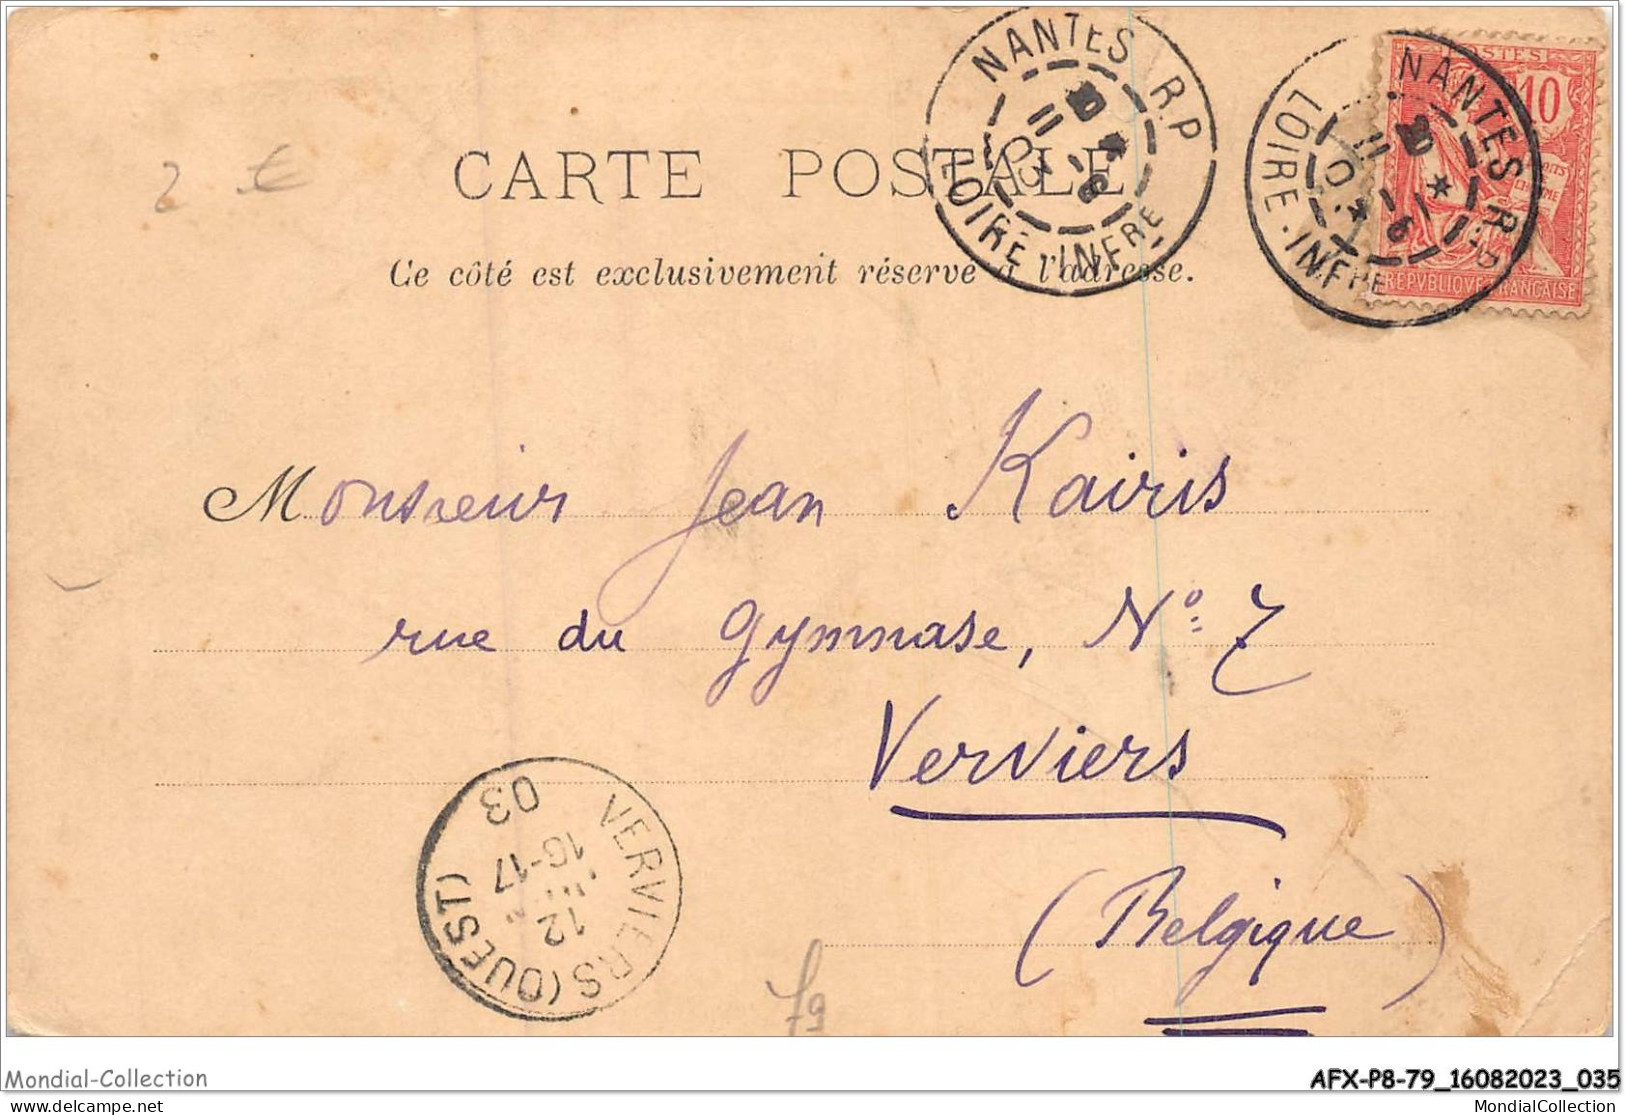 2 €
CARTE POSTALE
Ce côté est exclusivement réservé à l'adresse.
NANTES R.P.
11
03
LOIRE-INFRE
NANTES R.P.
11
LOIRE-INFRE
POSTES
10
REPVBLIQVE FRANÇAISE
Monsieur Jean Kairis
rue du Gymnase, No. 7
Verviers
(Belgique)
VERVIERS (OUEST)
12
16-17
03
79
Mondial-Collection
AFX-P8-79_16082023_035
www.delcampe.net
MondialCollection